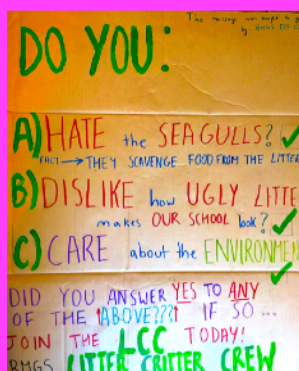 The message was
by RMGS
DO YOU:
A) HATE the SEAGULLS?
FACT → THEY SCAVENGE FOOD FROM THE LITTER
B) DISLIKE how UGLY LITTE
makes OUR SCHOOL look?
C) CARE about the ENVIRONMEN
DID YOU ANSWER YES TO ANY
OF THE ↑ABOVE???↑ IF SO...
JOIN THE LCC TODAY!
RMGS LITTER CRITTER CREW